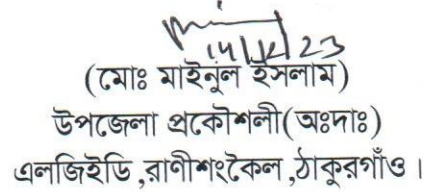 14/12/23
(মোঃ মাইনুল ইসলাম)
উপজেলা প্রকৌশলী(অঃদাঃ)
এলজিইডি ,রাণীশংকৈল ,ঠাকুরগাঁও ।